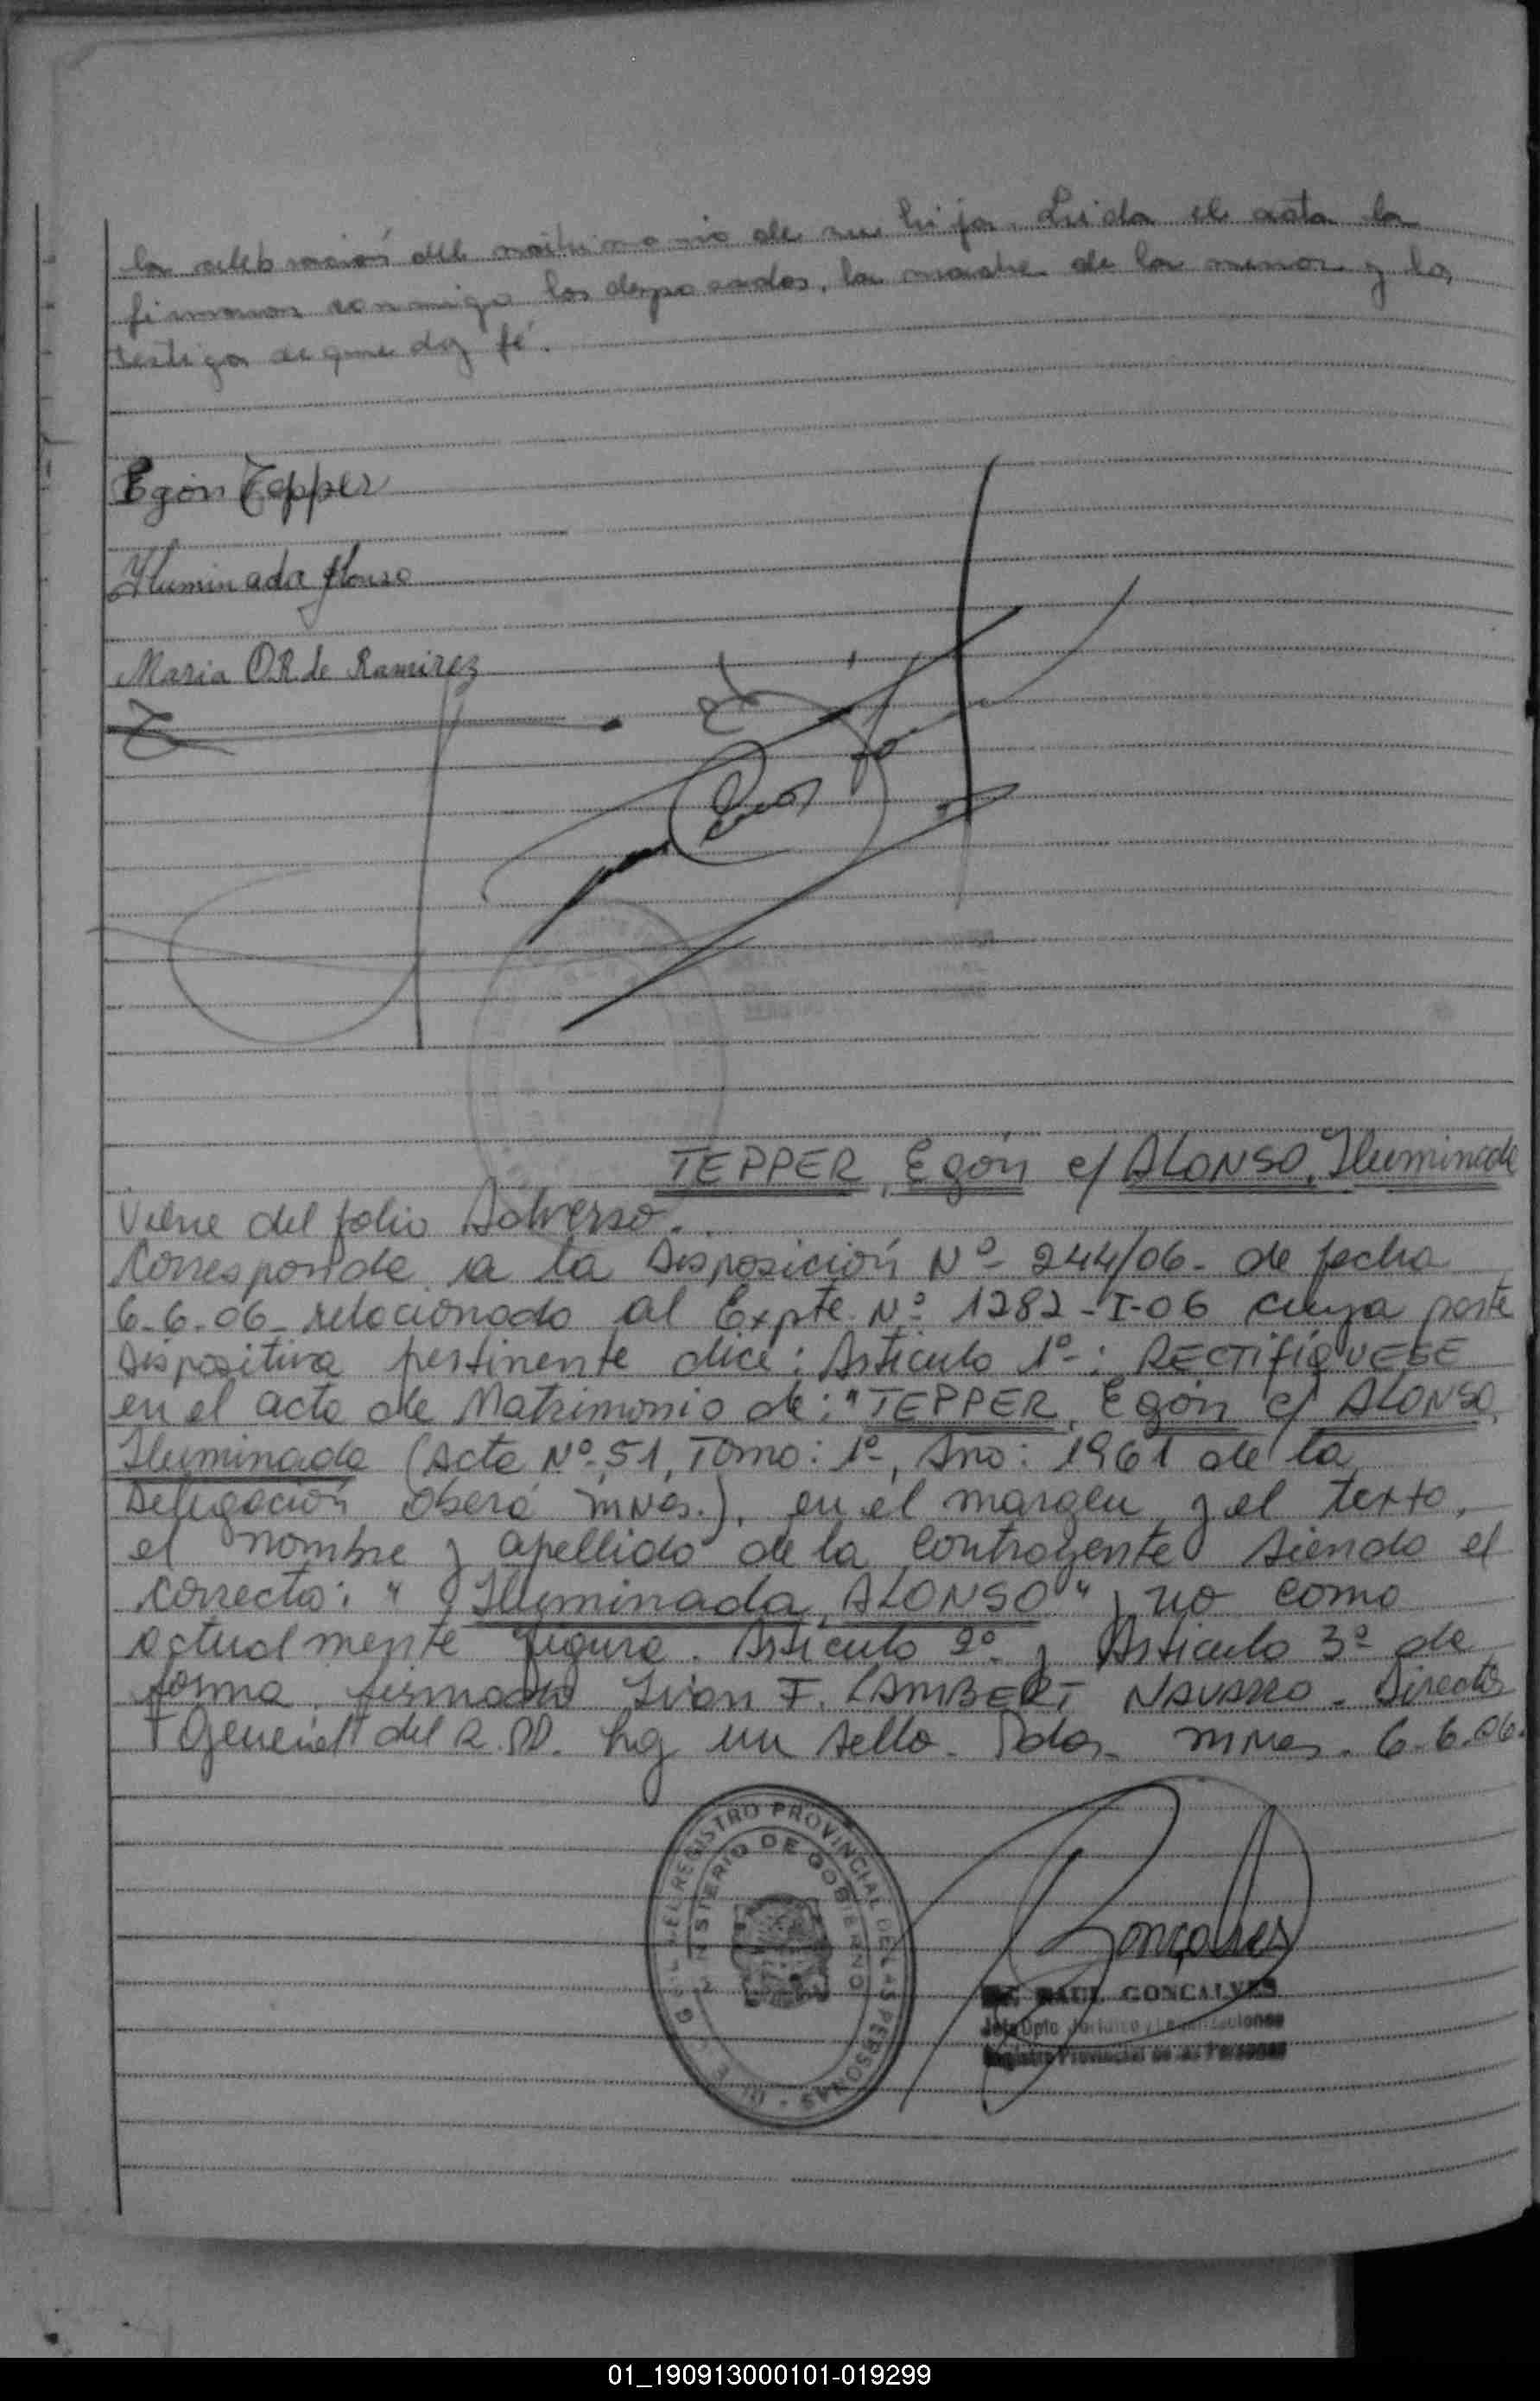 la celebración del matrimonio de su hija. Leida el acta la
firman conmigo los desposados, la madre de la menor y los
testigos de que doy fé.
Egon Tepper
Iluminada Alonso
Maria O.R. de Ramirez
TEPPER, Egón c/ ALONSO, Iluminada
Viene del folio Adverso.
Corresponde a la Disposición Nº 244/06- de fecha
6-6-06- relacionado al Expte. Nº 1282-I-06 cuya parte
Dispositiva pertinente dice: Articulo 1º-: RECTIFÍQUESE
en el acta de Matrimonio de: "TEPPER, Egón c/ ALONSO,
Iluminada (Acta Nº 51, Tomo: 1º, Año: 1961 de la
Delegación Oberá Mnes.), en el margen y el texto,
el nombre y apellido de la contrayente siendo el
correcto: "Iluminada, ALONSO" y no como
actualmente figura. Articulo 2º y Articulo 3º de
forma, firmado Ivan F. LAMBERT NAVARRO - Director
General del R.PP. hay un sello. Pdas. Mnes. 6-6-06.
REGISTRO PROVINCIAL DE LAS PERSONAS
MINISTERIO DE GOBIERNO
Gonçalves
RAUL GONCALVES
Jefe Dpto. Jurídico y
Registro Provincial de las Personas
01_190913000101-019299